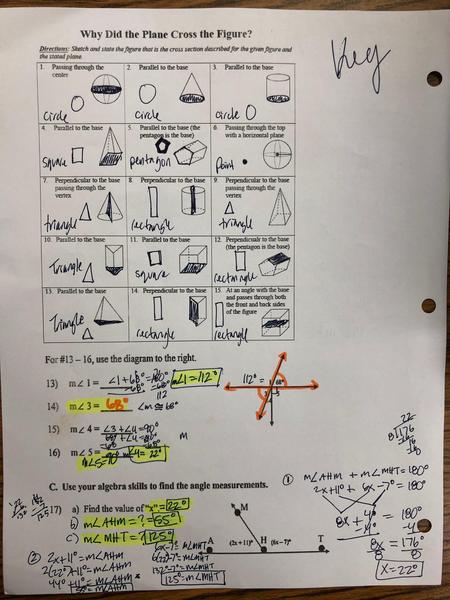 Why Did the Plane Cross the Figure?
Key
Directions: Sketch and state the figure that is the cross section described for the given figure and the stated plane.
1. Passing through the center
circle
2. Parallel to the base
circle
3. Parallel to the base
circle
4. Parallel to the base
square
5. Parallel to the base (the pentagon is the base)
pentagon
6. Passing through the top with a horizontal plane
point
7. Perpendicular to the base passing through the vertex
triangle
8. Perpendicular to the base
rectangle
9. Perpendicular to the base passing through the vertex
triangle
10. Parallel to the base
Triangle
11. Parallel to the base
square
12. Perpendicular to the base (the pentagon is the base)
rectangle
13. Parallel to the base
Triangle
14. Perpendicular to the base
rectangle
15. At an angle with the base and passes through both the front and back sides of the figure
rectangle
For #13 – 16, use the diagram to the right.
13) m∠ 1 = ∠1 + 68° = 180°
112
m∠1 = 112°
112° =
68°
14) m∠ 3 = 68°
15) m∠ 4 = ∠3 + ∠4 = 90°
∠4 = 22°
M
16) m∠ 5 =
m∠5 = 90°
C. Use your algebra skills to find the angle measurements.
17) a) Find the value of "x" = 22°
b) m∠AHM = ? = 55°
c) m∠MHT = ? 125°
① m∠AHM + m∠MHT = 180°
2x+11° + 6x-7° = 180°
8x + 4° = 180°
-4° -4
8x = 176°
8 8
x = 22°
22
8 176
16
16
M
A
(2x+11)°
H
(6x-7)°
T
② 2x+11° = m∠AHM
2(22°)+11° = m∠AHM
44°+11° = m∠AHM
55° = m∠AHM
6x-7° = m∠MHT
6(22)-7° = m∠MHT
132-7° = m∠MHT
125° = m∠MHT